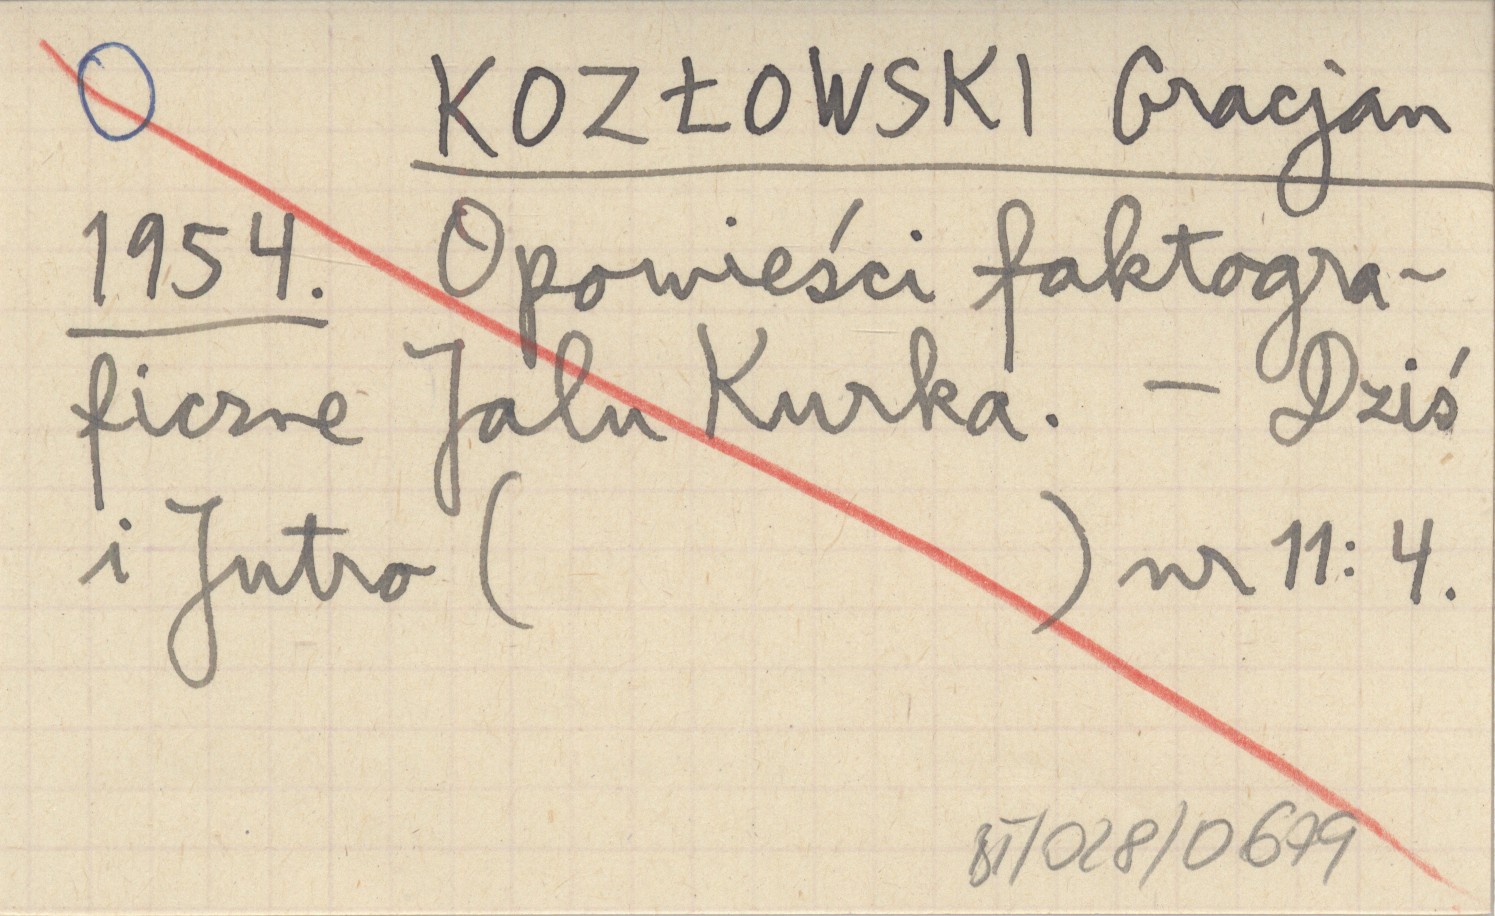 KOZŁOWSKI Gracjan
1954. Opowieści faktogra-
ficzne Jalu Kurka. – Dziś
i Jutro ( ) nr 11: 4.
/028/0679